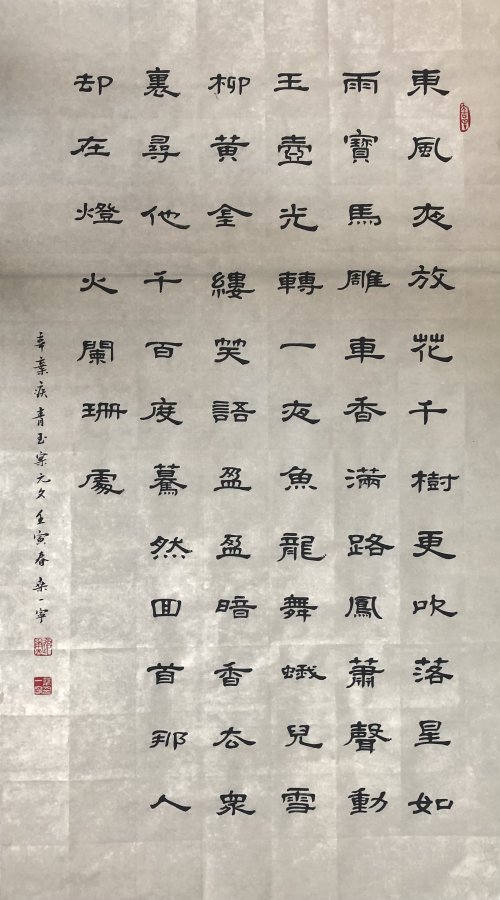 東風夜放花千樹更吹落星如
雨寶馬雕車香滿路鳳蕭聲動
玉壺光轉一夜魚龍舞蛾兒雪
柳黄金縷笑語盈盈暗香去衆
裏尋他千百度驀然回首那人
却在燈火闌珊處
辛棄疾青玉案元夕壬寅春桑一寧